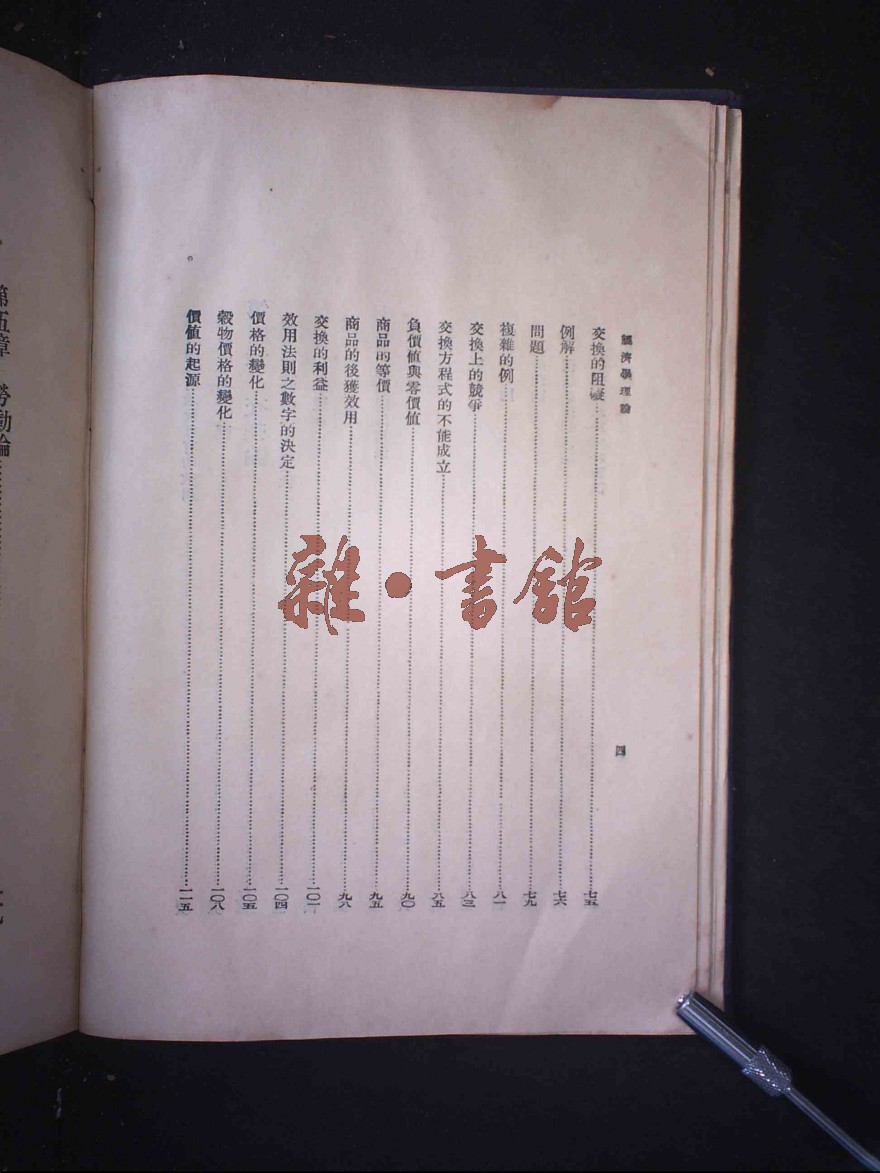 經濟學理論
四
交換的阻礙……七五
例解……七六
問題……七九
複雜的例……八一
交換上的競爭……八三
交換方程式的不能成立……八五
負價值與零價值……九〇
商品的等價……九五
商品的後獲效用……九八
交換的利益……一〇一
效用法則之數字的決定……一〇四
價格的變化……一〇五
穀物價格的變化……一〇八
價值的起源……一一五
第五章 勞動論……
雜·書館